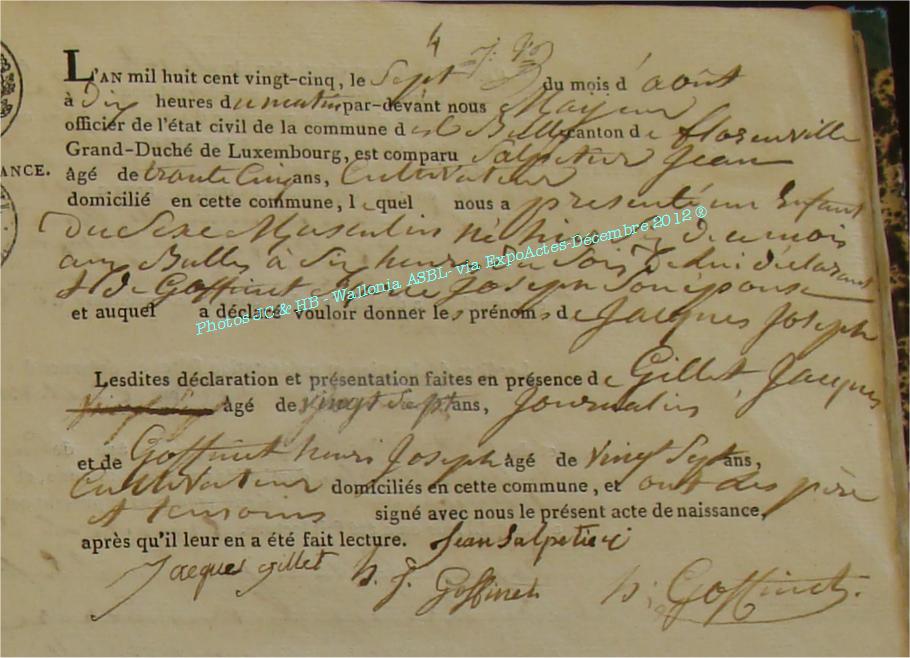 4
L'AN mil huit cent vingt-cinq, le Sept du mois d'août
à Dix heures du matin par-devant nous Mayeur
officier de l'état civil de la commune des Bulles canton de florenville
Grand-Duché de Luxembourg, est comparu Salpeteur Jean
ANCE.
âgé de trante Cinq ans, Cultivateur
domicilié en cette commune, lequel nous a présenté un Enfant
Du Sexe Masculin né hier du mois
aux Bulles à Six heures du Soir de lui declarant
et de Goffinet Joseph Son epouse
et auquel a déclaré vouloir donner les prénoms de Jacques Joseph
Photos JC & HB - Wallonia ASBL- via ExpoActes-Décembre 2012 ®
Lesdites déclaration et présentation faites en présence de Gillet Jacques
âgé de vingt Sept ans, Journalier
et de Goffinet henri Joseph âgé de Vingt Sept ans,
Cultivateur domiciliés en cette commune, et ont les père
et temoins signé avec nous le présent acte de naissance,
après qu'il leur en a été fait lecture. Jean Salpetier
Jacques gillet h. J. Goffinet h: Goffinet.